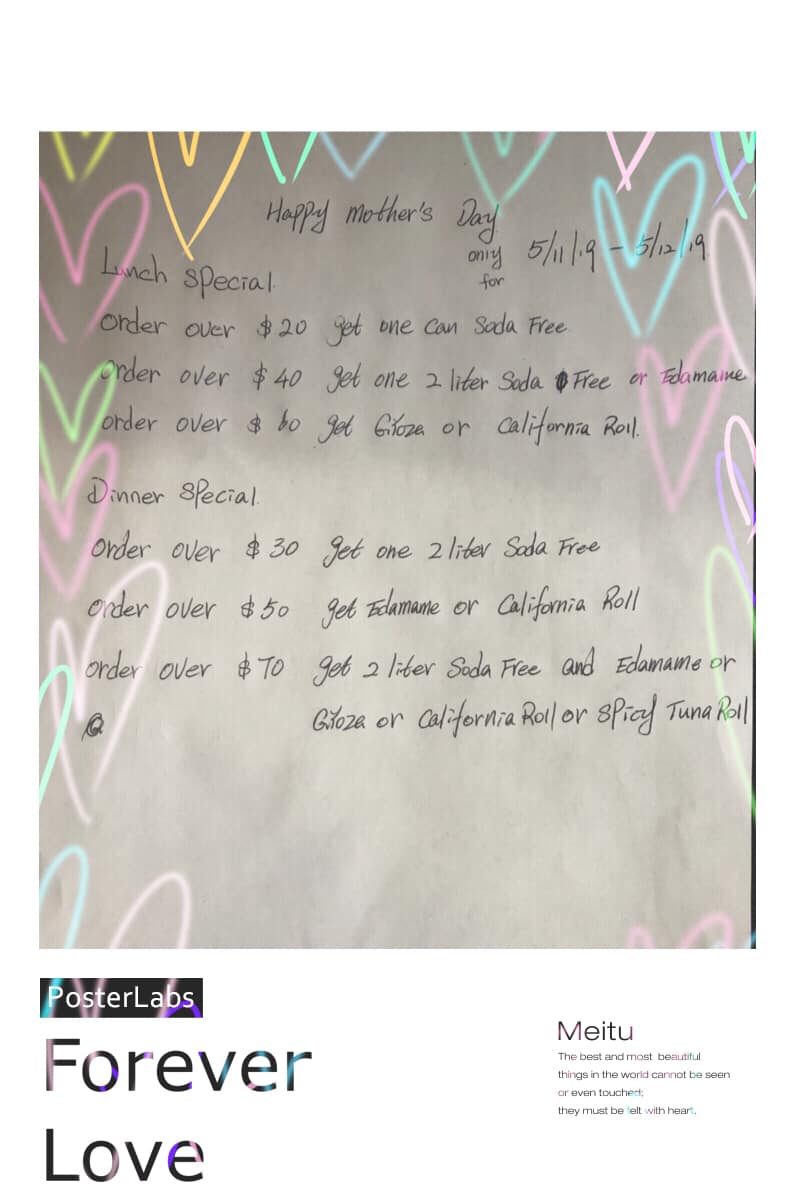 Happy Mother's Day
only for 5/11/19 - 5/12/19
Lunch Special.
Order over $20 get one can Soda Free.
Order over $40 get one 2 liter Soda Free or Edamame
order over $60 get Gyoza or California Roll.
Dinner Special.
Order over $30 get one 2 liter Soda Free
Order over $50 get Edamame or California Roll
order over $70 get 2 liter Soda Free and Edamame or
Gyoza or California Roll or Spicy Tuna Roll
PosterLabs
Forever
Love
Meitu
The best and most beautiful
things in the world cannot be seen
or even touched;
they must be felt with heart.